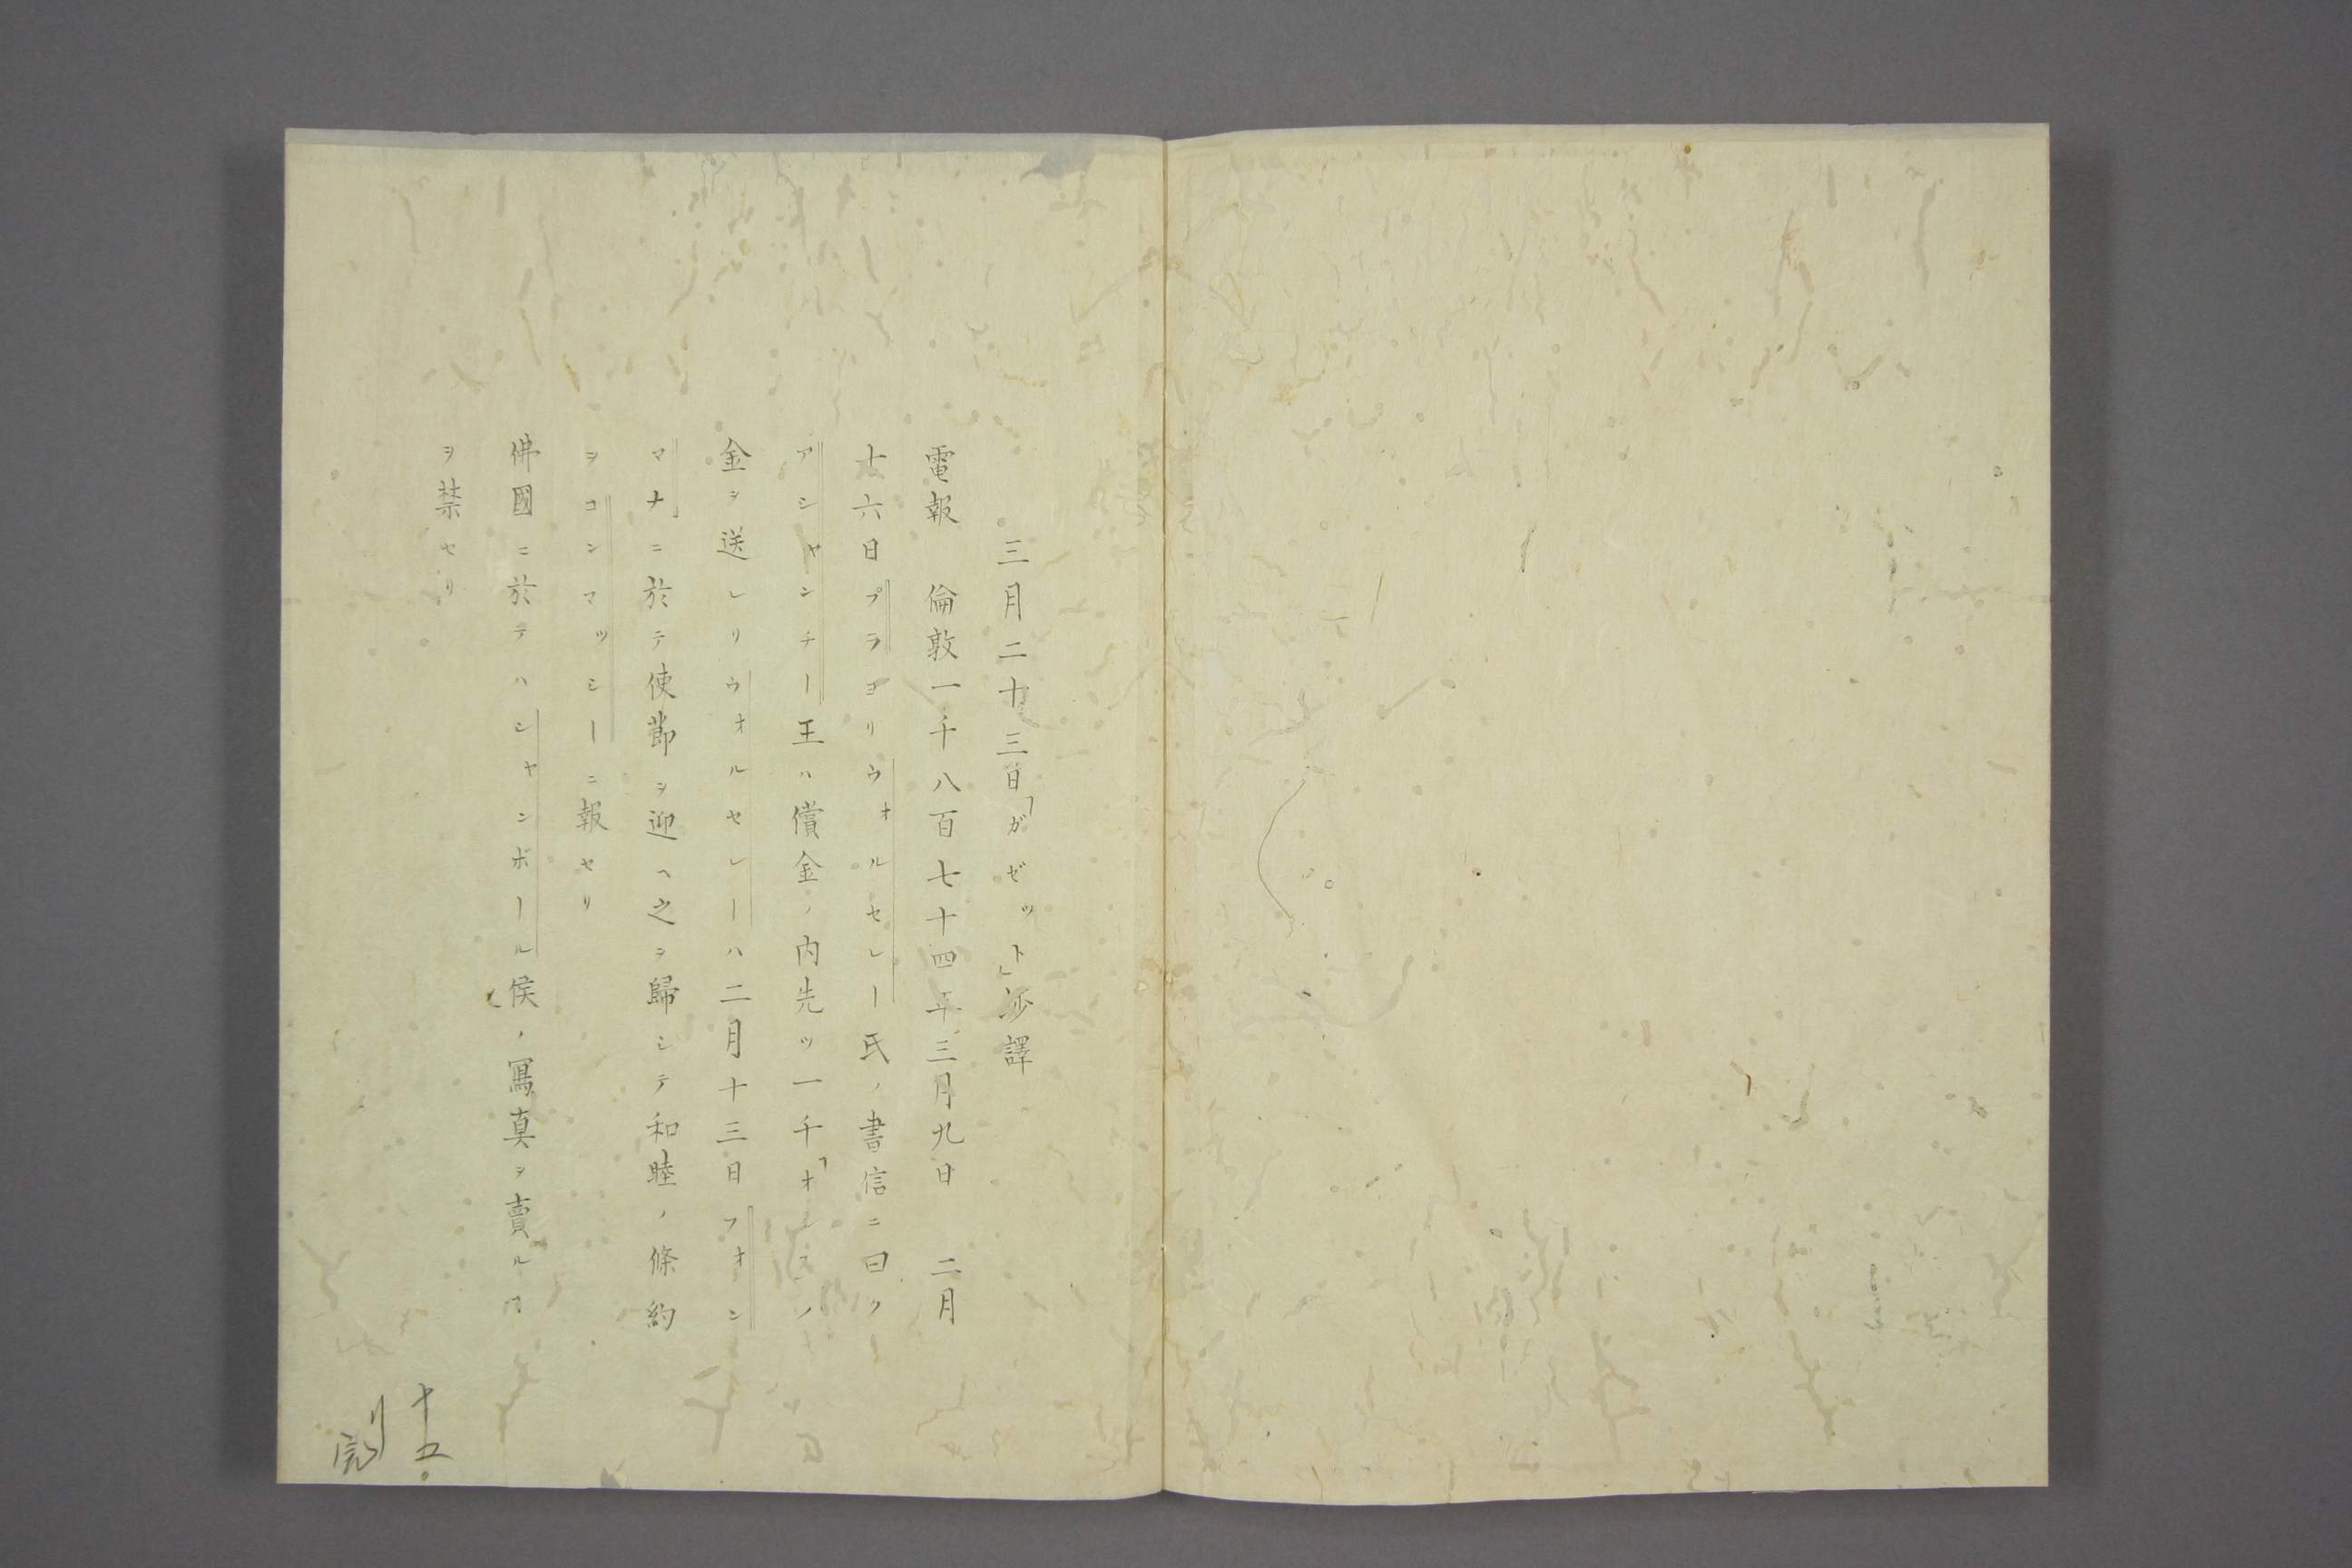 三月二十三日「ガゼット」抄譯
電報　倫敦一千八百七十四年三月九日　二月
十六日プラヨリウオルセレー氏ノ書信ニ曰ク
アシャンチー王ハ償金ノ内先ツ一千「オンスノ
金ヲ送レリウオルセレーハ二月十三日フオン
マナ」ニ於テ使節ヲ迎ヘ之ヲ歸シテ和睦ノ條約
ヲコンマッシーニ報セリ
佛國ニ於テハシャンボール侯ノ寫真ヲ賣ルヿ
ヲ禁セリ
十五